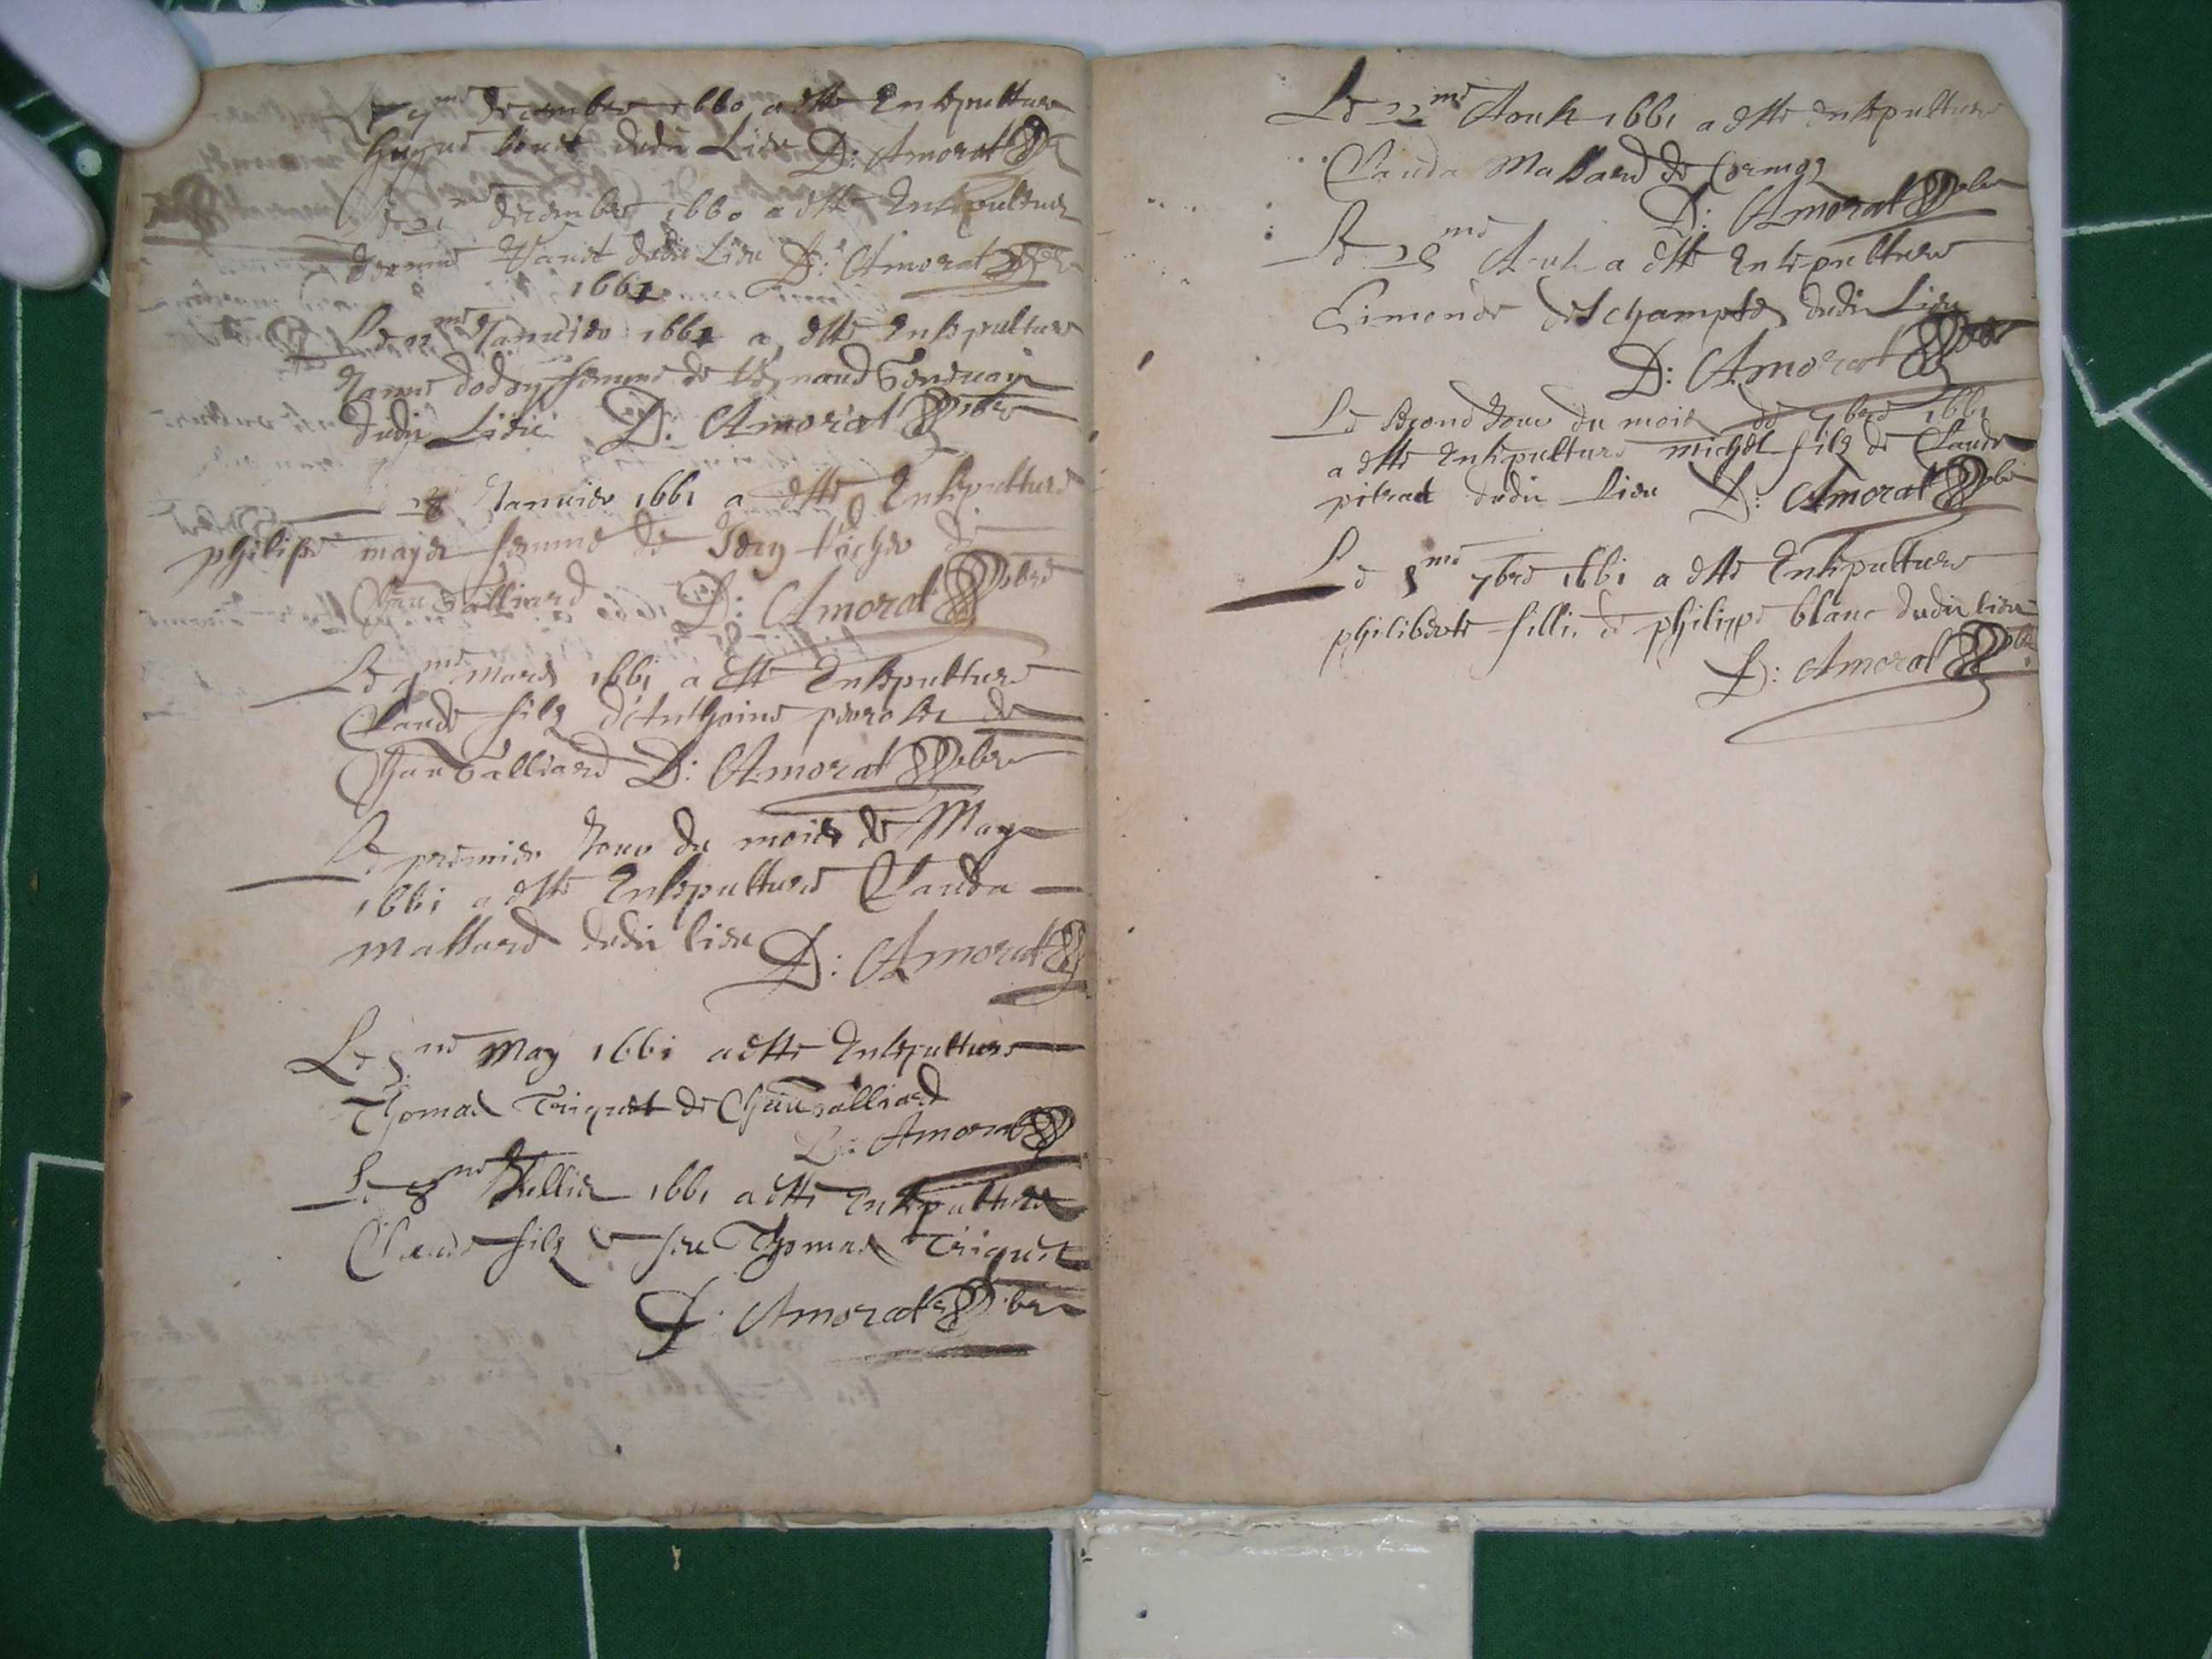 decembre 1660 a este Ensepulture
dudit Lieu D: Amorat
Le 21me decembre 1660 a este Ensepulture
dudit Lieu D: Amorat
1661
Le 22me Januier 1661 a este Ensepulture
femme de
dudit Lieu D: Amorat
28 Januier 1661 a este Ensepulture
philipe mayer femme de de
Chauballiard D: Amorat
Le mars 1661 a este Ensepulture
Claude filz d'Anthoine de
Chauballiard D: Amorat
Le premier Jour du mois de May
1661 a este Ensepulture Clauda
Mallard dudit lieu D: Amorat
Le 5me May 1661 a este Ensepulture
Thomas Triquet de Chauballiard
D: Amorat
Le 8me Jullier 1661 a este Ensepulture
Claude filz feu Thomas Triquet
D: Amorat
Le 22me Aoust 1661 a este ensepulture
Clauda Mallard de Cormoz
D: Amorat
Le 28me a este Ensepulture
Eimonde deschamptes dudit Lieu
D: Amorat
Le second Jour du mois de 7bre 1661
a este Ensepulture michel filz de Claude
dudit Lieu D: Amorat
Le 8me 7bre 1661 a este Ensepulture
philiberte fille de philippe blanc dudit lieu
D: Amorat